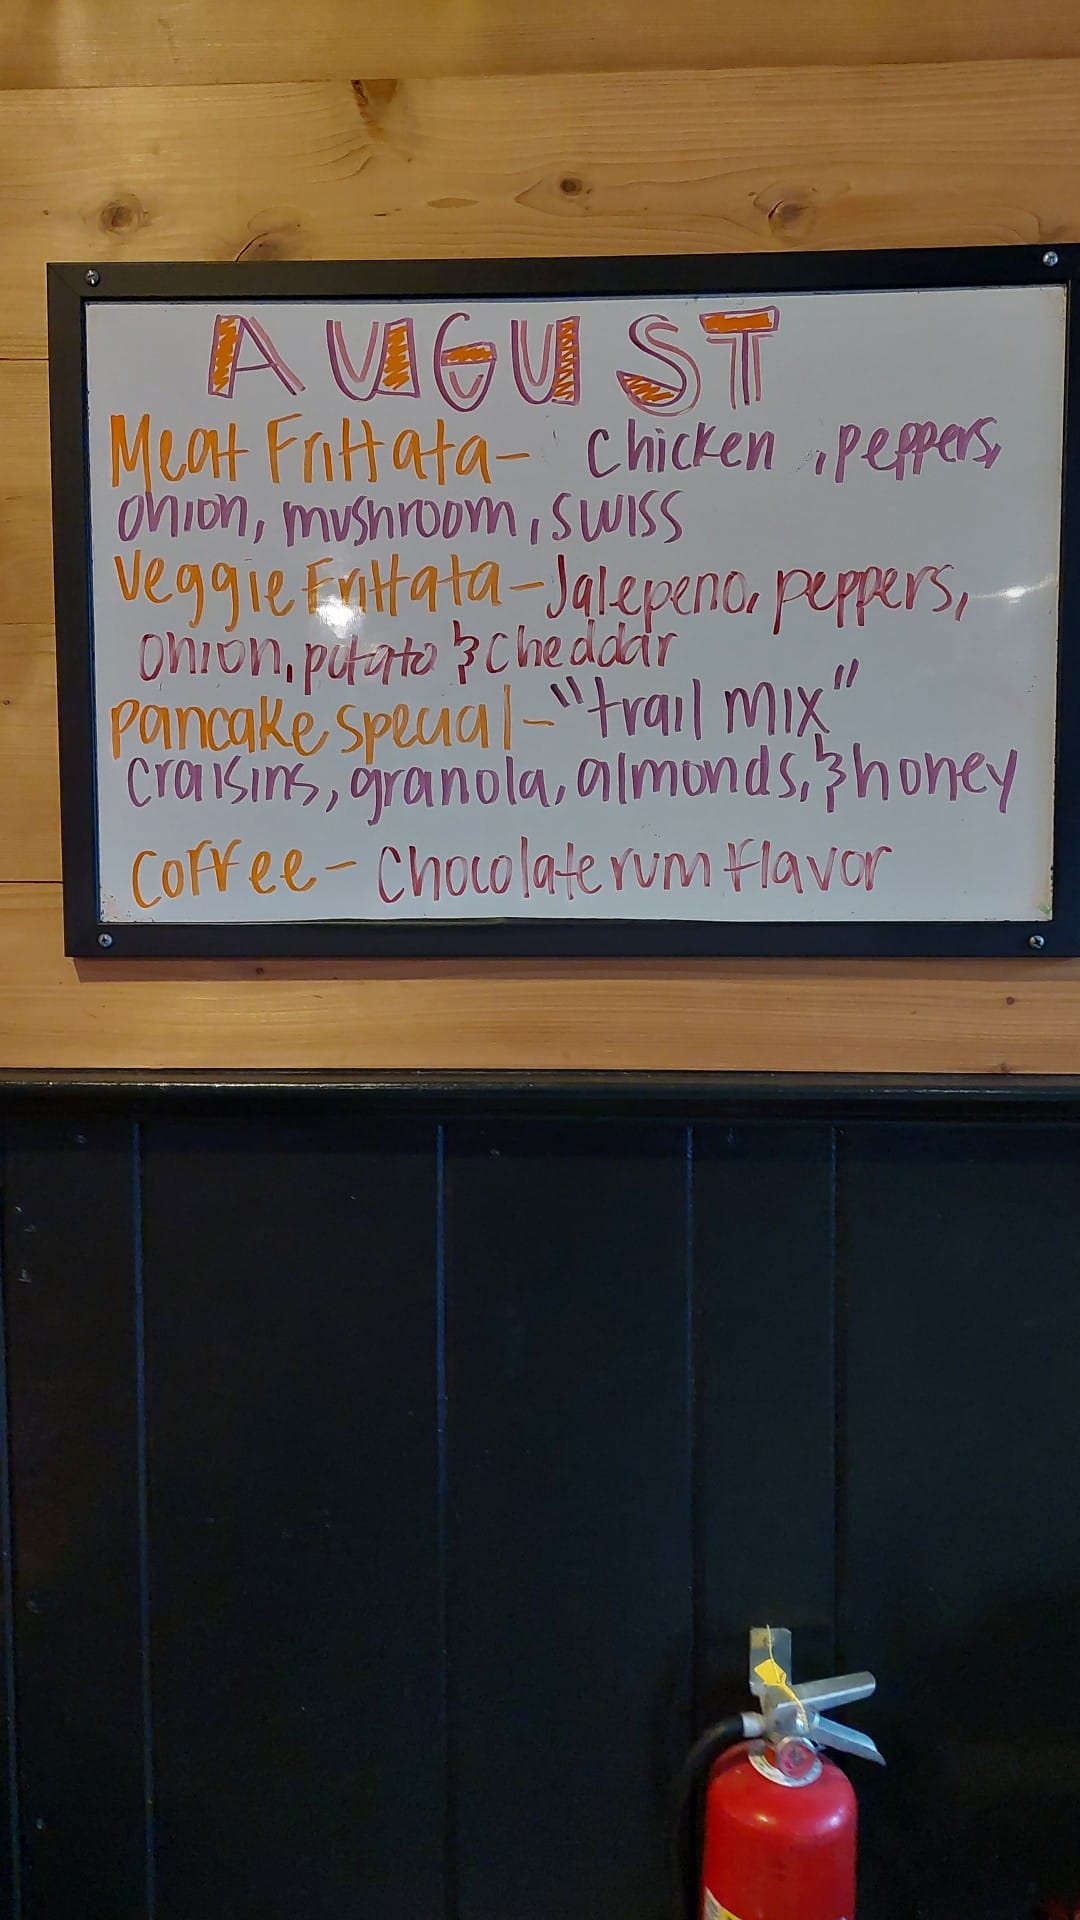 AUGUST
Meat Frittata- chicken, peppers,
onion, mushroom, swiss
Veggie Frittata-Jalepeno, peppers,
onion, potato & cheddar
pancake special-"trail mix"
craisins, granola, almonds, & honey
coffee- Chocolate rum flavor